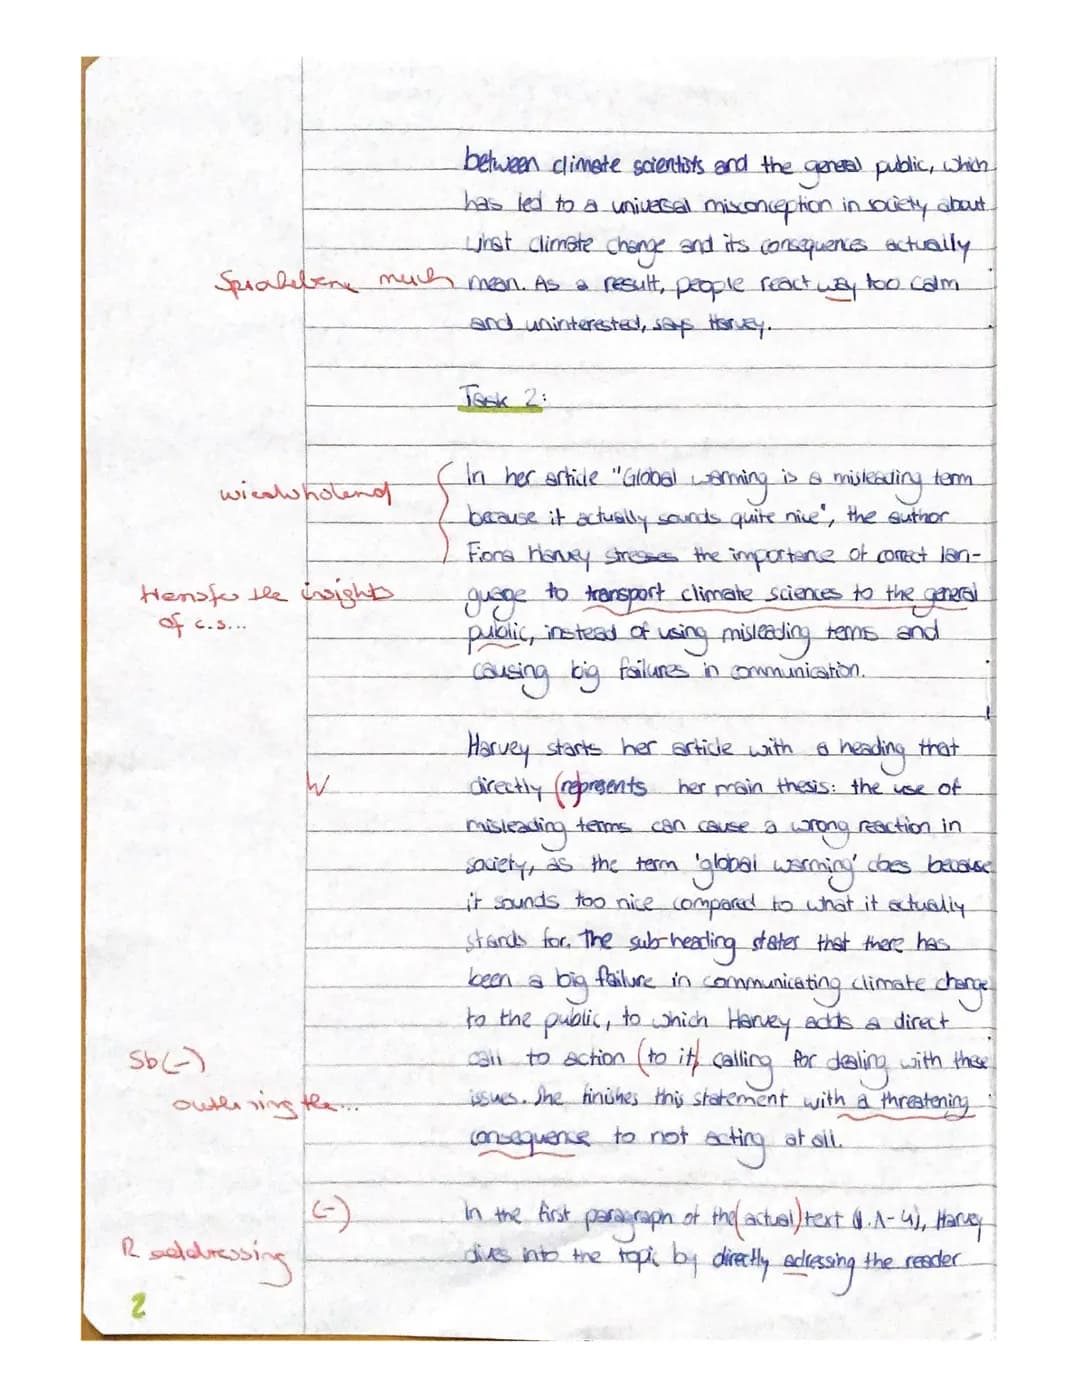 between climate scientists and the general public, which
has led to a universal misconception in society about
what climate change and its consequences actually
Sprachebene much mean. As a result, people react way too calm
and uninterested, says Harvey.
Task 2:
In her article "Global warming is a misleading term
wiederholend
because it actually sounds quite nice", the author
Fiona Harvey stresses the importance of correct lan-
transfer the insights guage to transport climate sciences to the general
of c.s...
public, instead of using misleading terms and
causing big failures in communication.
Harvey starts her article with a heading that
W directly (represents her main thesis: the use of
misleading terms can cause a wrong reaction in
society, as the term 'global warming' does because
it sounds too nice compared to what it actually
stands for. The sub-heading states that there has
been a big failure in communicating climate change
to the public, to which Harvey adds a direct
Sb(-) call to action (to it) calling for dealing with these
outlining the... issues. She finishes this statement with a threatening
consequence to not acting at all.
(-) In the first paragraph of the (actual) text (l. 1-4), Harvey
R addressing dives into the topic by directly adressing the reader
2